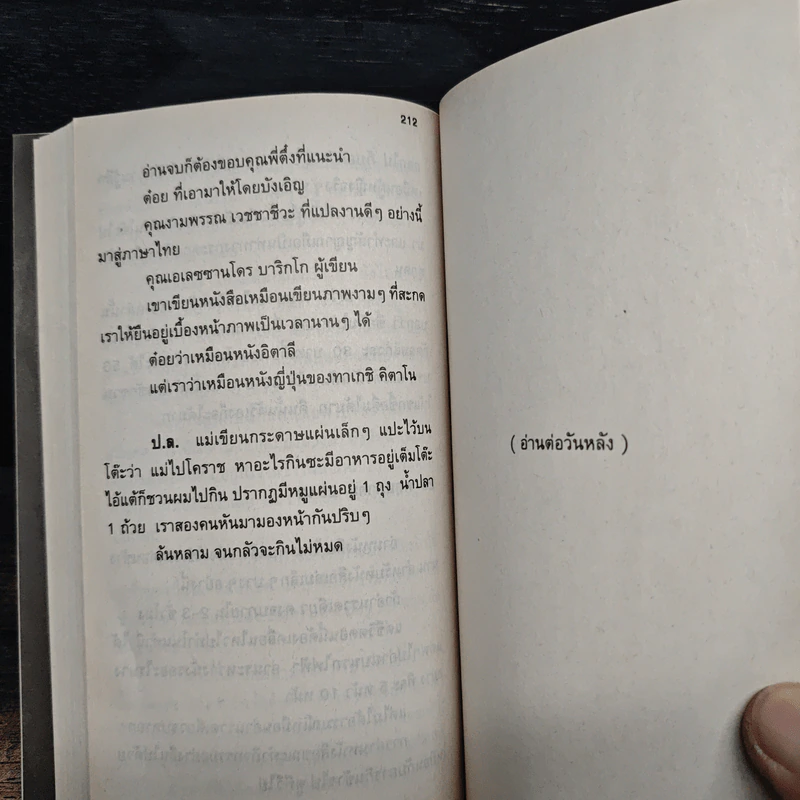 212
อ่านจบก็ต้องขอบคุณพี่ตึ๋งที่แนะนำ
ต๋อย ที่เอามาให้โดยบังเอิญ
คุณงามพรรณ เวชชาชีวะ ที่แปลงานดีๆ อย่างนี้
มาสู่ภาษาไทย
คุณเอเลซซานโดร บาริกโก ผู้เขียน
เขาเขียนหนังสือเหมือนเขียนภาพงามๆ ที่สะกด
เราให้ยืนอยู่เบื้องหน้าภาพเป็นเวลานานๆ ได้
ต๋อยว่าเหมือนหนังอิตาลี
แต่เราว่าเหมือนหนังญี่ปุ่นของทาเกชิ คิตาโน
ป.ล. แม่เขียนกระดาษแผ่นเล็กๆ แปะไว้บน
โต๊ะว่า แม่ไปโคราช หาอะไรกินซะมีอาหารอยู่เต็มโต๊ะ
ไอ้แต้ก็ชวนผมไปกิน ปรากฏมีหมูแผ่นอยู่ 1 ถุง น้ำปลา
1 ถ้วย เราสองคนหันมามองหน้ากันปริบๆ
ล้นหลาม จนกลัวจะกินไม่หมด
( อ่านต่อวันหลัง )